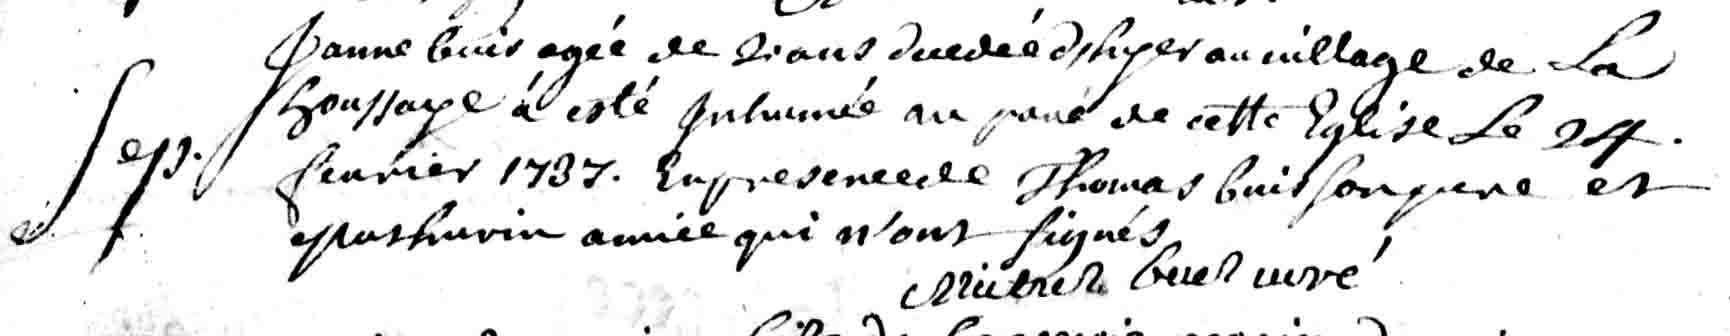 Janne buis agée de 2 ans decedée d'hyer au village de La
houssaye á esté Inhumée au pavé de cette Eglise Le 24.
Sep.
fevrier 1737. En presence de Thomas buis son pere et
Mathurin amiée qui n'ont signés
buel curé